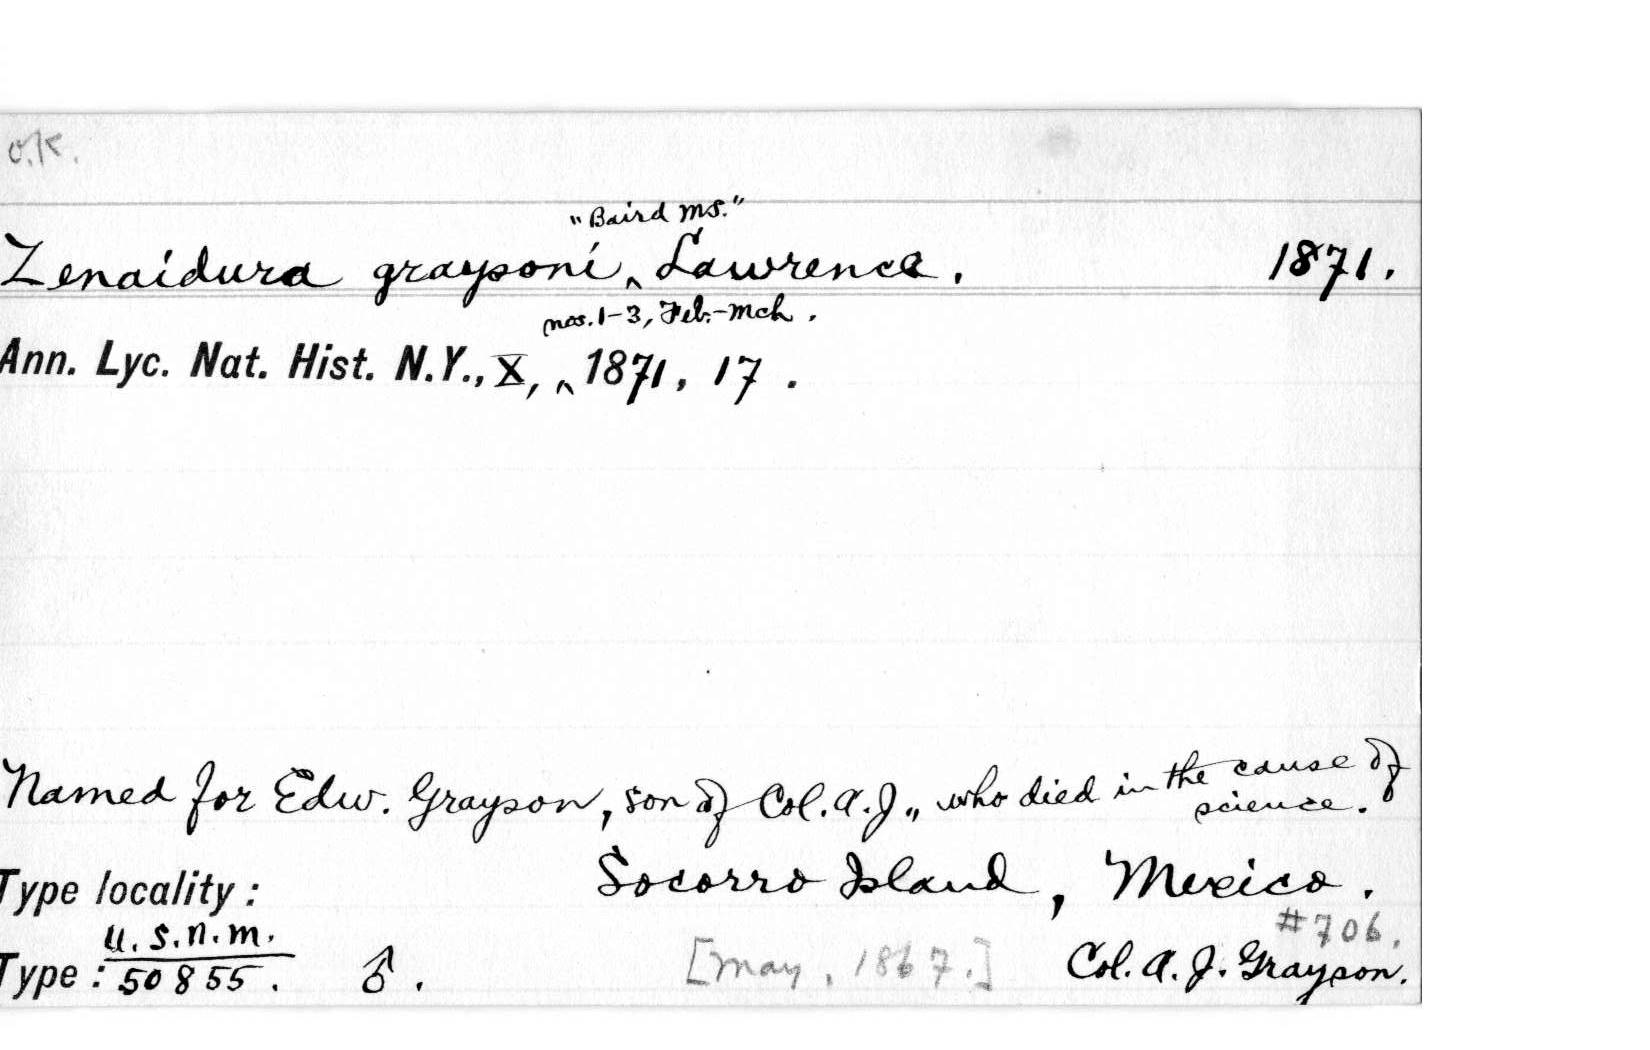 O.K.
"Baird MS."
Zenaidura graysoni ‸ Lawrence. 1871.
nos. 1-3, Feb.-Mch.
Ann. Lyc. Nat. Hist. N.Y., X, ‸ 1871, 17.
Named for Edw. Grayson, son of Col. A. J., who died in the cause of
science.
Type locality: Socorro Island, Mexico.
#706.
U.S.N.M.
Type: 50855. ♂. [May, 1867.] Col. A. J. Grayson.